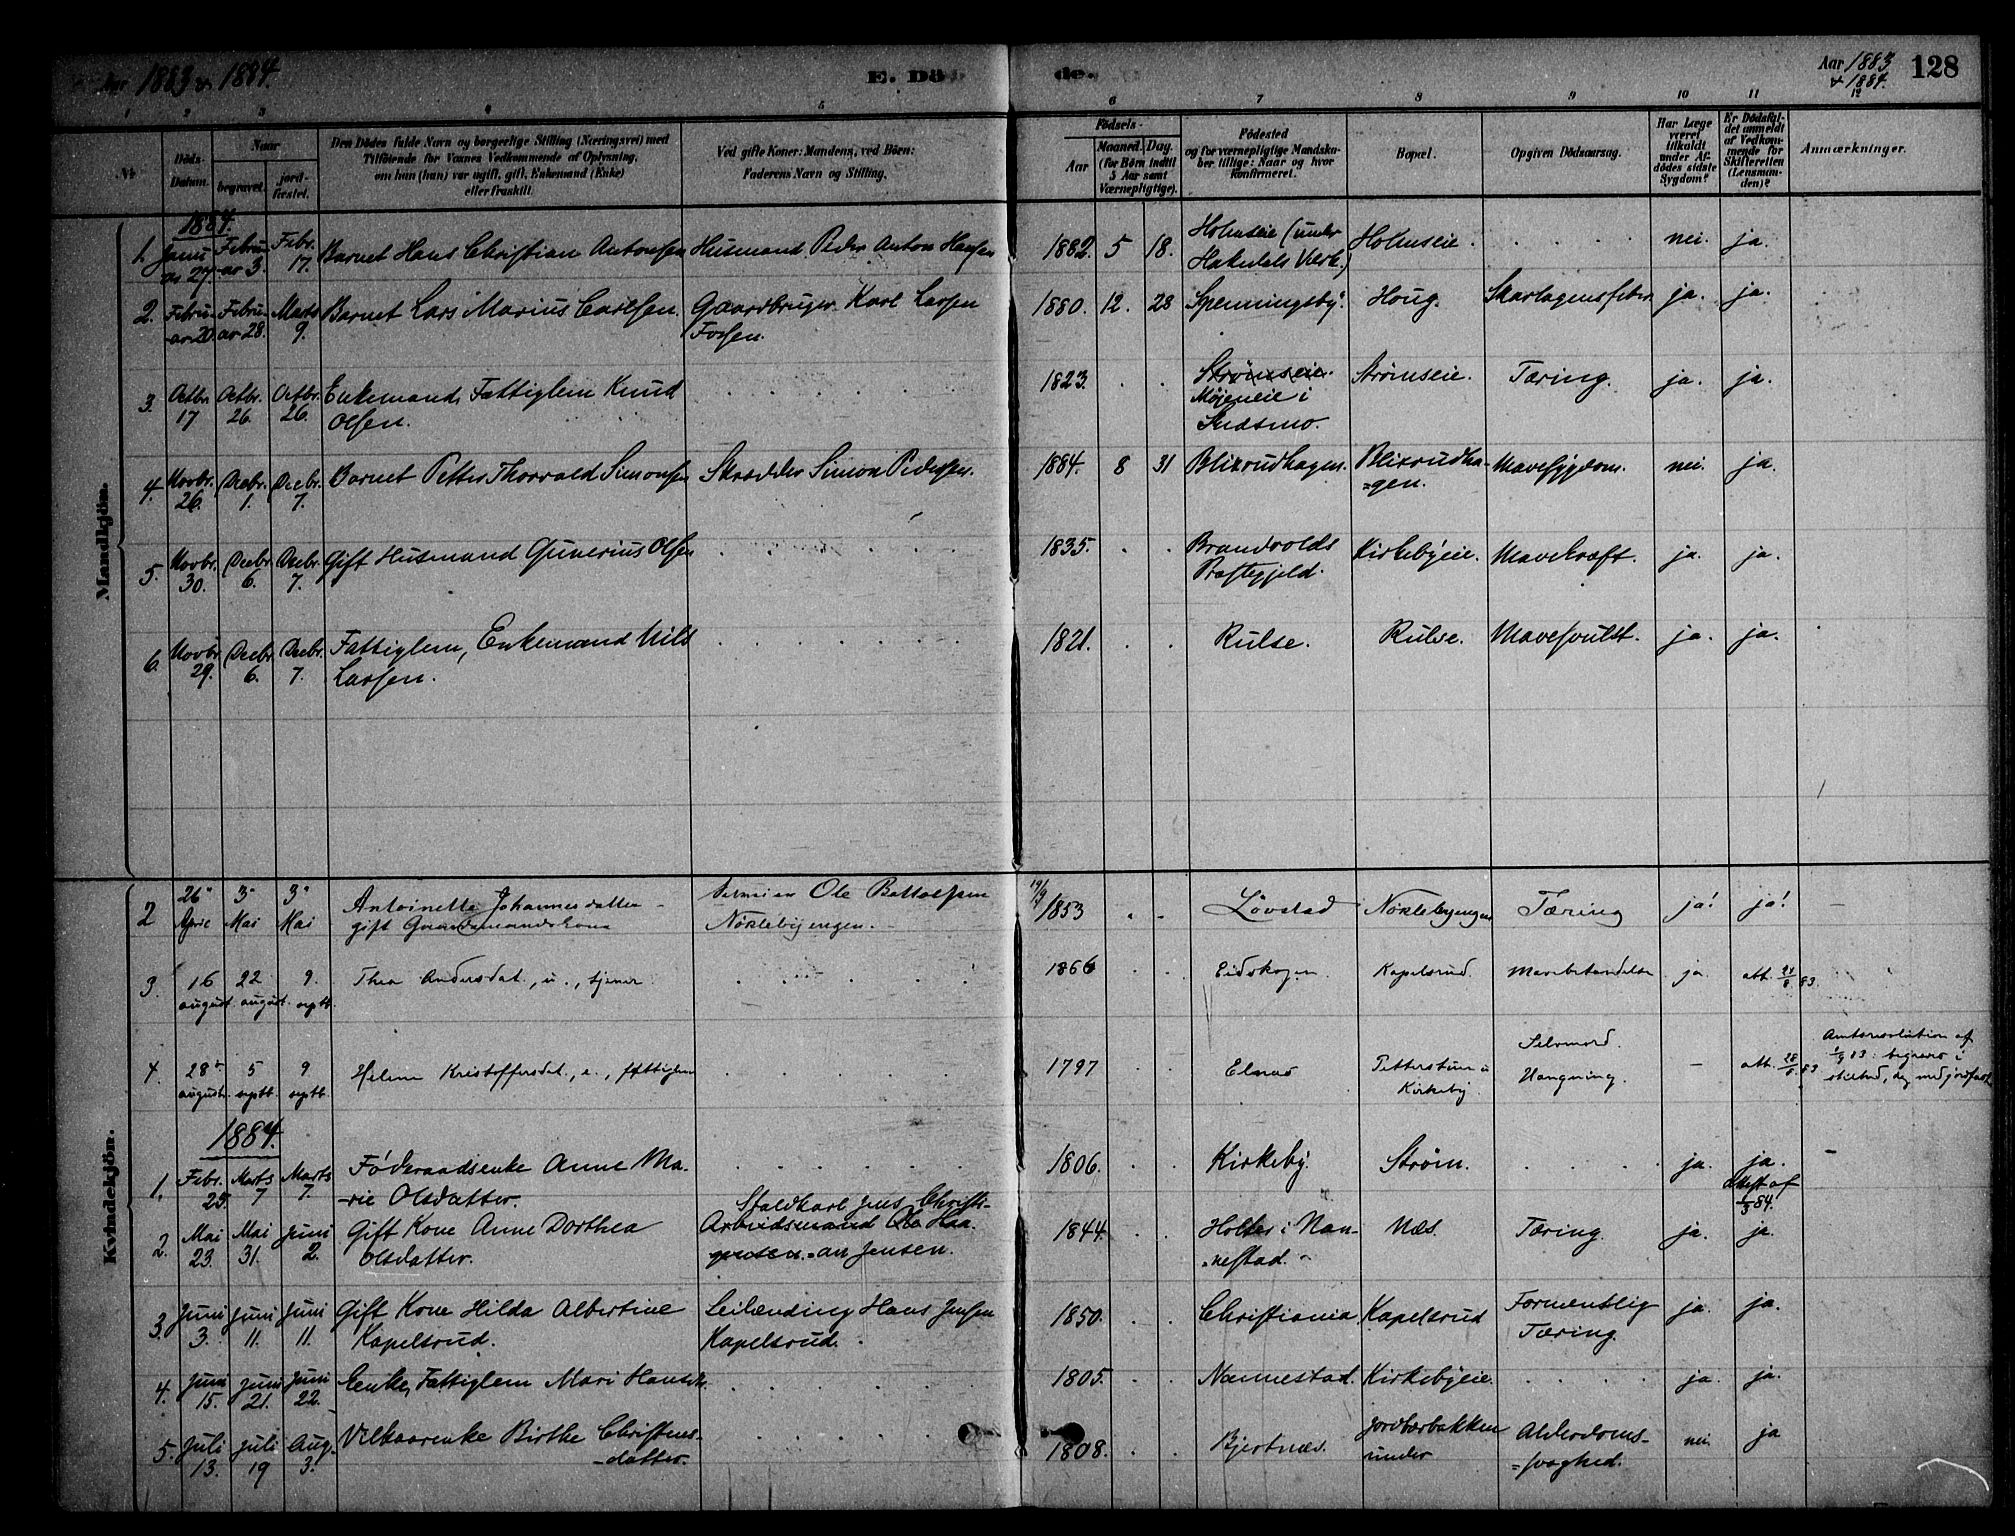 Aar 1883 & 1884.
E. Dö de.
Aar 1883 & 1884.
128
1 2 3 4 5 6 7 8 9 10 11 12
No
Döds-Datum.
Naar
begravet.
jord-fæstet.
Den Dödes fulde Navn og borgerlige Stilling (Næringsvei) med
Tilföiende for Voxnes Vedkommende af Oplysning,
om han (hun) var ugift, gift, Enkemand (Enke)
eller fraskilt.
Ved gifte Koner: Mandens, ved Börn:
Faderens Navn og Stilling.
Födsels-
Aar
Maaned. Dag.
(for Börn indtil
5 Aar samt
Værnepligtige).
Födested
og for værnepligtige Mandska-
ber tillige: Naar og hvor
konfirmeret.
Bopæl.
Opgiven Dödsaarsag.
Har Læge
været
tilkaldt
under Af-
dödes sidste
Sygdom?
Er Dödsfal-
det anmeldt
af Vedkom-
mende for
Skifteretten
(Lensman-
den)?
Anmærkninger.
Mandkjön.
1884.
1. Janu-ar 27. Febru-ar 3. Febr. 17. Barnet Hans Christian Antonsen Husmand Peder Anton Hansen 1882. 5 18. Holmseie (under Hakedals Værk.) Holmseie. nei. ja.
2. Febru-ar 20. Febru-ar 28. Marts 9. Barnet Lars Marius Carlsen. Gaardbruger Karl Larsen Fossen. 1880. 12. 28 Spenningsby. Houg. Skarlagensfeber ja. ja.
3. Octbr. 17 Octbr. 26. Octbr. 26. Enkemand, Fattiglem Knud Olsen. 1823. Strømseie. Møjeneie i Sudsmo. Strømseie. Tæring. ja. ja.
4. Novbr. 26. Decbr. 1. Decbr. 7. Barnet Petter Thorvald Simonsen Skrædder Simon Pedersen. 1884. 8 31 Blixrudhagen. Blixrudha-gen. Mavesygdom. nei. ja.
5. Novbr. 30. Decbr. 6. Decbr. 7. Gift Husmand Gunerius Olsen 1835. Brandvolds Præstegjeld. Kirkebyeie. Mavekræft. ja. ja.
6. Novbr. 29. Decbr. 6. Decbr. 7. Fattiglem, Enkemand Nils Larsen. 1821. Rulse. Rulse. Mavesvulst. ja. ja.
Kvindekjön.
2 26 April 3 Mai 3 Mai Antoinette Johannesdatter gift Ole Bottolfsen Nöklebyengen. 19/9 1853 Lövstad Nöklebyengen Tæring ja! ja!
3. 16 august. 22 august. 9. septb. Thea Andersdat., u., tjener. 1866 Eidskogen. Kapelsrud. Mavebetændelse ja. att. 24/8 83
4. 28 august. 5 septb. 9 septb. Helene Kristoffersdat., e., fattiglem 1797 Elnæs Petterstuen u Kirkeby. Selvmord. Hængning. — att. 28/8 83 Amtsresolution af 1/9 83: begraves i stilhed, dog med jordfæst.
1884.
1. Febr. 25. Marts 7 Marts 7. Føderaadsenke Anne Ma-rie Olsdatter. 1806. Kirkeby. Strøm. ja. ja. Attest af /3 84.
2. Mai 23. Mai 31. Juni 2. Gift Kone Anne Dorthea Olsdatter. Staldkarl Jens Christi-an Jensen. Arbeidsmand Ole Haa-gensen. 1844. Holter i Nan-nestad. Næs. Tæring. ja. ja.
3. Juni 3. Juni 11. Juni 11. Gift Kone Hilda Albertine Kapelsrud. Leilænding Hans Jensen Kapelsrud. 1850. Christiania Kapelsrud Formentlig Tæring. ja. ja.
4. Juni 15. Juni 21. Juni 22. Enke, Fattiglem Mari Hansdtr. 1805. Nannestad. Kirkebyeie. ja. ja.
5. Juli 13. Juli 19 Aug. 3. Vilkaarenke Birthe Christens-datter. 1808. Bjertnæs. Jordbærbakken under Alderdoms-svaghed. nei. ja